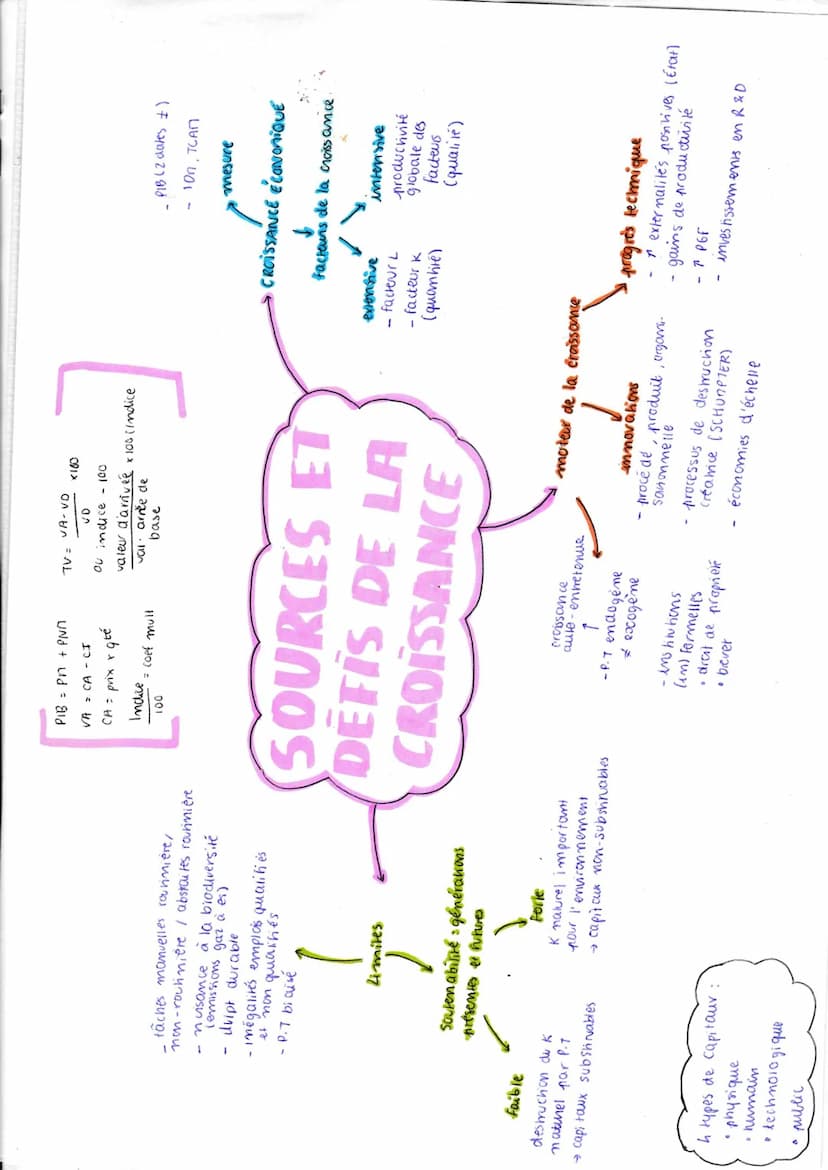 SOURCES ET
DÉFIS DE LA
CROISSANCE
PIB = PM + PNM
VA = CA - CI
CA = prix x qté
Indice
100
= coef mull
TV = VA - VD
VD
x100
ou indice - 100
valeur d'arrivée x 100 (indice
val. année de
base
CROISSANCE ÉCONOMIQUE
mesure
- PIB (2 dates ≠)
- IDH, TCAM
facteurs de la croissance
extensive
- facteur L
- facteur K
(quantité)
intensive
productivité
globale des
facteurs
(qualité)
moteur de la croissance
croissance
auto-entretenue
↑
- P.T endogène
≠ exogène
- institutions
(in)formelles
• droit de propriété
• brevet
innovations
- procédé, produit, organi-
sationnelle
- processus de destruction
créatrice (SCHUMPTER)
- économies d'échelle
progrès technique
- ↑ externalités positives (État)
- gains de productivité
- ↑ PGF
- investissements en R&D
Limites
- tâches manuelles routinière/
non-routinière / abstraites routinière
- nuisance à la biodiversité
(émissions gaz à es)
- dvlpt durable
- inégalités emplois qualifiés
et non qualifiés
- P.T biaisé
Soutenabilité = générations
présentes et futures
faible
destruction du K
naturel par P.T
→ capitaux substituables
forte
K naturel important
pour l'environnement
→ capitaux non-substituables
4 types de capitaux :
• physique
• humain
• technologique
• public